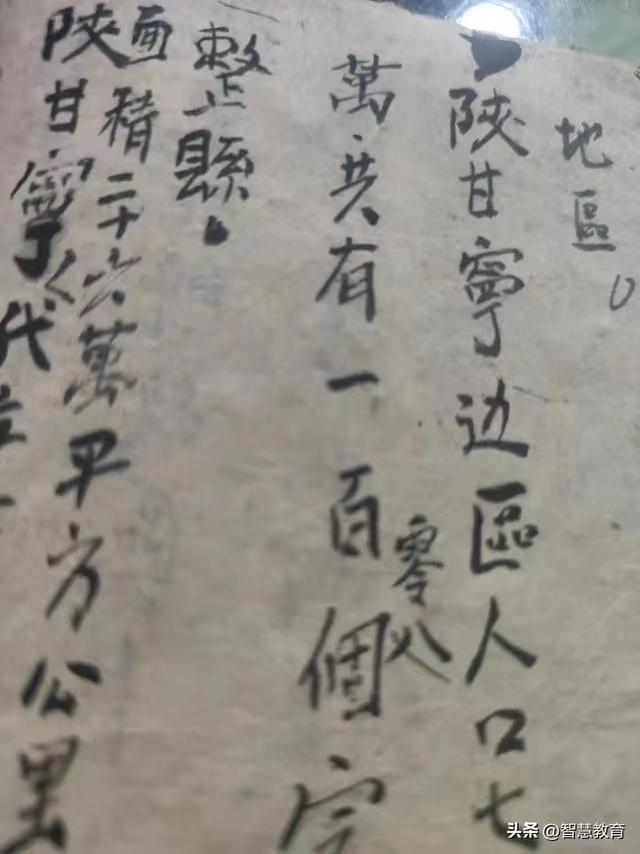 地區。
陝甘寧边區人口七
萬共有一百零八個完
整縣。
面積二十六萬平方公里
陝甘寧
代
头条 @智慧教育